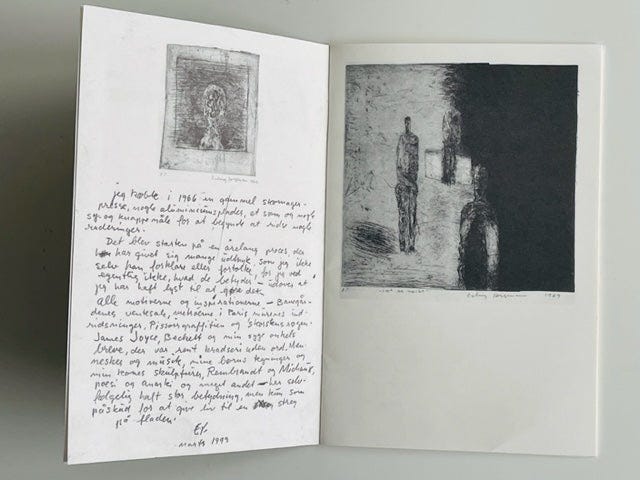 jeg købte i 1966 en gammel skomager-
presse, nogle aluminiumsplader, et som og nogle
sy- og knappenåle for at begynde at ridse nogle
raderinger.
Det blev starten på en årelang proces, der
har givet sig mange udtryk, som jeg ikke
selv kan forklare eller fortolke, for jeg ved
egentlig ikke, hvad de betyder – udover at
jeg har haft lyst til at gøre det.
Alle motiverne og inspirationerne – Banegår-
denes ventesale, metroerne i Paris murenes ind-
ridsninger, Pissoirgraffitien og skorstensrøgen.
James Joyce, Beckett og min syge onkels
breve, der var rent kradseri uden ord. Men-
nesker og musik, mine børns tegninger og
min kones skulpturer, Rembrandt og Michaux,
poesi og anarki og meget andet – har selv-
følgelig haft stor betydning, men kun som
påskud for at give liv til en streg
på fladen.
marts 1999
1969